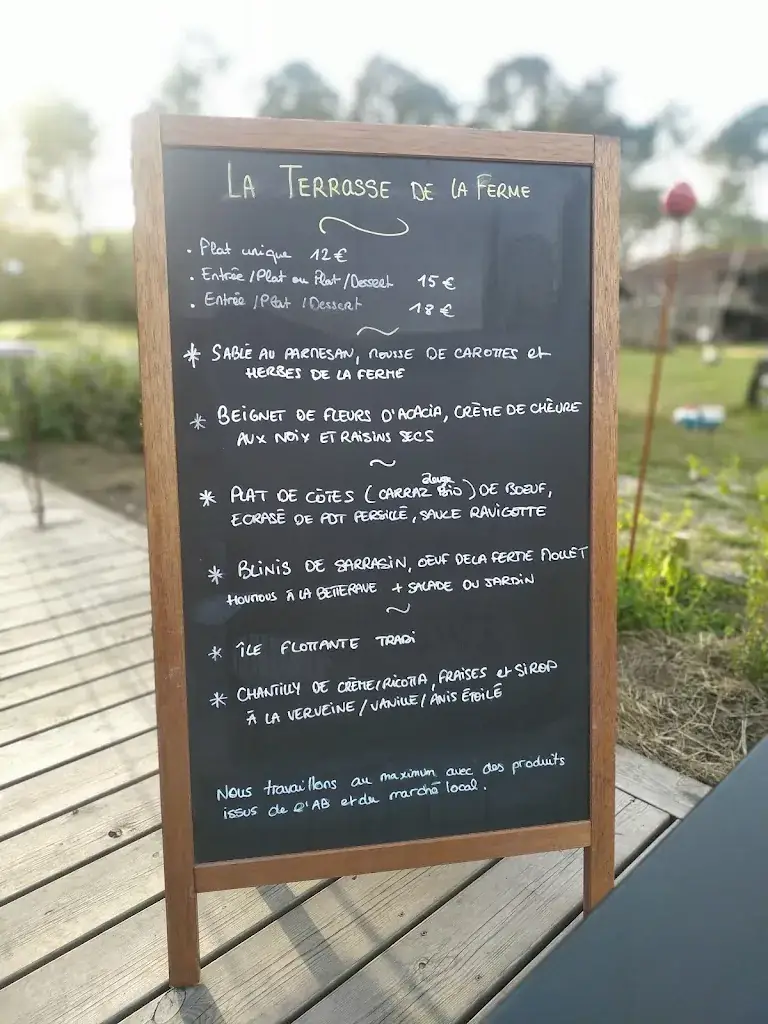 LA TERRASSE DE LA FERME
. Plat unique 12€
. Entrée/Plat ou Plat/Dessert 15€
. Entrée/Plat/Dessert 18€
* SABLÉ AU PARMESAN, MOUSSE DE CAROTTES et
HERBES DE LA FERME
* BEIGNET DE FLEURS D'ACACIA, CRÈME DE CHÈVRE
AUX NOIX ET RAISINS SECS
~
* PLAT DE CÔTES (CARRAZ BIO) DE BOEUF,
ECRASÉ DE PDT PERSILLÉ, SAUCE RAVIGOTTE
* BLINIS DE SARRASIN, OEUF DE LA FERME MOLLET
HOUMOUS À LA BETTERAVE + SALADE DU JARDIN
~
* ÎLE FLOTTANTE TRADI
* CHANTILLY DE CRÈME/RICOTTA, FRAISES et SIROP
À LA VERVEINE/VANILLE/ANIS ÉTOILÉ
Nous travaillons au maximum avec des produits
issus de l'AB et du marché local.